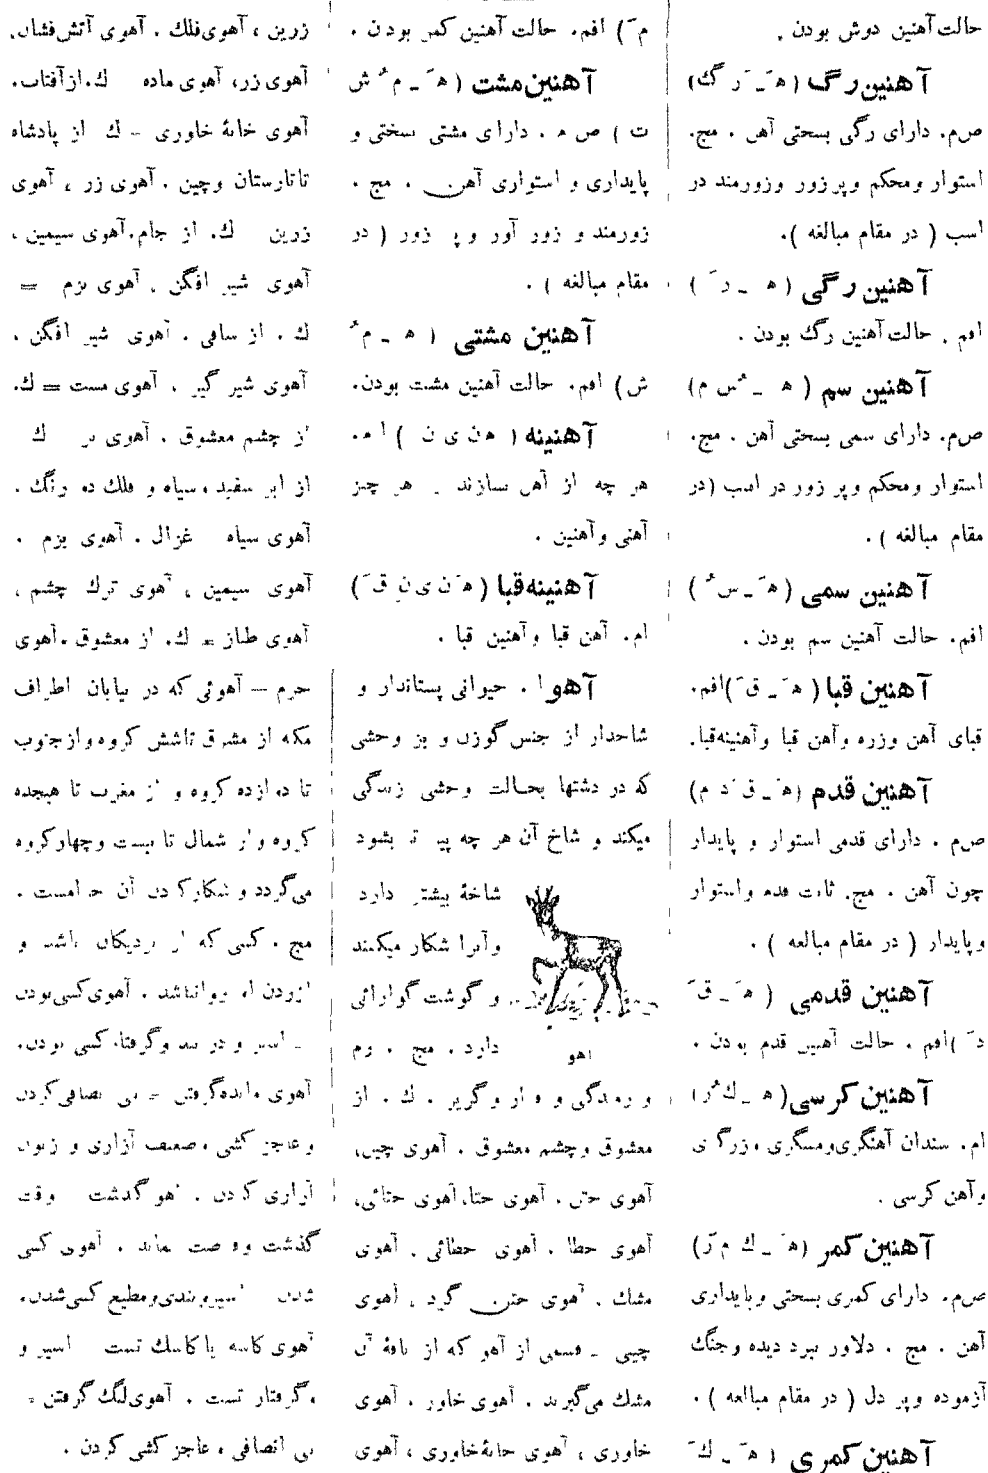 حالت آهنین دوش بودن .
آهنین رگ ( هَ ـ َ ر گ )
ص‌م. دارای رگی بسختی آهن . مج.
استوار ومحکم وپر زور وزورمند در
اسب ( در مقام مبالغه ).
آهنین رگی ( ه ـ رَ )
افم . حالت آهنین رگ بودن .
آهنین سم ( ه ـ ُس م)
ص‌م. دارای سمی بسختی آهن . مج.
استوار ومحکم وپر زور در اسب (در
مقام مبالغه ) .
آهنین سمی ( هَ ـ سُ )
افم. حالت آهنین سم بودن .
آهنین قبا ( هَ ـ قَ )افم.
قبای آهن وزره وآهن قبا وآهنینه‌قبا.
آهنین قدم (هَ ـ قَ دَ م)
ص‌م . دارای قدمی استوار و پایدار
چون آهن . مج. ثابت قدم واستوار
وپایدار ( در مقام مبالغه ) .
آهنین قدمی ( هَ ـ قَ
دَ )افم . حالت آهنین قدم بودن .
آهنین کرسی( ه ـ ك ُر )
ام. سندان آهنگری‌ومسگری وزرگری
وآهن کرسی .
آهنین کمر (هَ ـ ك مَ ر)
ص‌م. دارای کمری بسختی وپایداری
آهن . مج . دلاور نبرد دیده وجنگ
آزموده وپر دل ( در مقام مبالغه ) .
آهنین کمری ( هَ ـ كَ
مَ ) افم. حالت آهنین کمر بودن .
آهنین مشت ( هَ ـ مُ ش
ت ) ص م . دارای مشتی بسختی و
پایداری و استواری آهن . مج .
زورمند و زور آور و پر زور ( در
مقام مبالغه ) .
آهنین مشتی ( ه ـ مُ
ش) افم. حالت آهنین مشت بودن.
آهنینه ( ه‌ن ی ن ) ا م.
هر چه از آهن سازند . هر چیز
آهنی وآهنین .
آهنینه‌قبا (هَ ن ی ن قَ )
ام. آهن قبا وآهنین قبا .
آهو ا . حیوانی پستاندار و
شاخدار از جنس گوزن و بز وحشی
که در دشتها بحالت وحشی زندگی
میکند و شاخ آن هر چه پیر تر بشود
شاخهٔ بیشتر دارد
وآنرا شکار میکنند
و گوشت گوارائی
دارد . مج . رم
آهو
و رمندگی و فرار وگریز . ك . از
معشوق وچشم معشوق . آهوی چین،
آهوی ختن . آهوی ختا، آهوی ختائی،
آهوی خطا . آهوی خطائی . آهوی
مشك . آهوی ختن گرد . آهوی
چینی ـ قسمی از آهو که از نافهٔ آن
مشك می‌گیرند . آهوی خاور . آهوی
خاوری ، آهوی خانهٔ‌خاوری ، آهوی
زرین ، آهوی‌فلك . آهوی آتش‌فشان.
آهوی زر، آهوی ماده ك.ازآفتاب.
آهوی خانهٔ خاوری ـ ك از پادشاه
تاتارستان وچین . آهوی زر ، آهوی
زرین ك. از جام.آهوی سیمین ،
آهوی شیر افگن . آهوی بزم =
ك . از ساقی . آهوی شیر افگن .
آهوی شیر گیر . آهوی مست = ك.
از چشم معشوق . آهوی نر ك
از ابر سفید وسیاه و فلك ده رنگ .
آهوی سیاه غزال . آهوی بزم .
آهوی سیمین ، آهوی ترك چشم ،
آهوی طناز = ك. از معشوق .آهوی
حرم — آهوئی که در بیابان اطراف
مکه از مشرق تاشش کروه وازجنوب
تا دوازده کروه و از مغرب تا هیجده
کروه و از شمال تا بیست وچهارکروه
می‌گردد و شکارکردن آن حرامست .
مج . کسی که از نزدیکان باشد و
آزردن او روانباشد . آهوی‌کسی‌بودن
ـ اسیر و در بند وگرفتار کسی بودن.
آهوی مانده‌گرفتن = بی انصافی‌کردن
و عاجز کشی وضعیف آزاری و زبون
آزاری کردن . آهو گذشت وقت
گذشت وفرصت نماند . آهوی کسی
شدن اسیروبندی‌ومطیع کسی‌شدن.
آهوی کاسه یا کاسك تست اسیر و
گرفتار تست . آهوی‌لنگ گرفتن =
بی انصافی وعاجز کشی کردن .